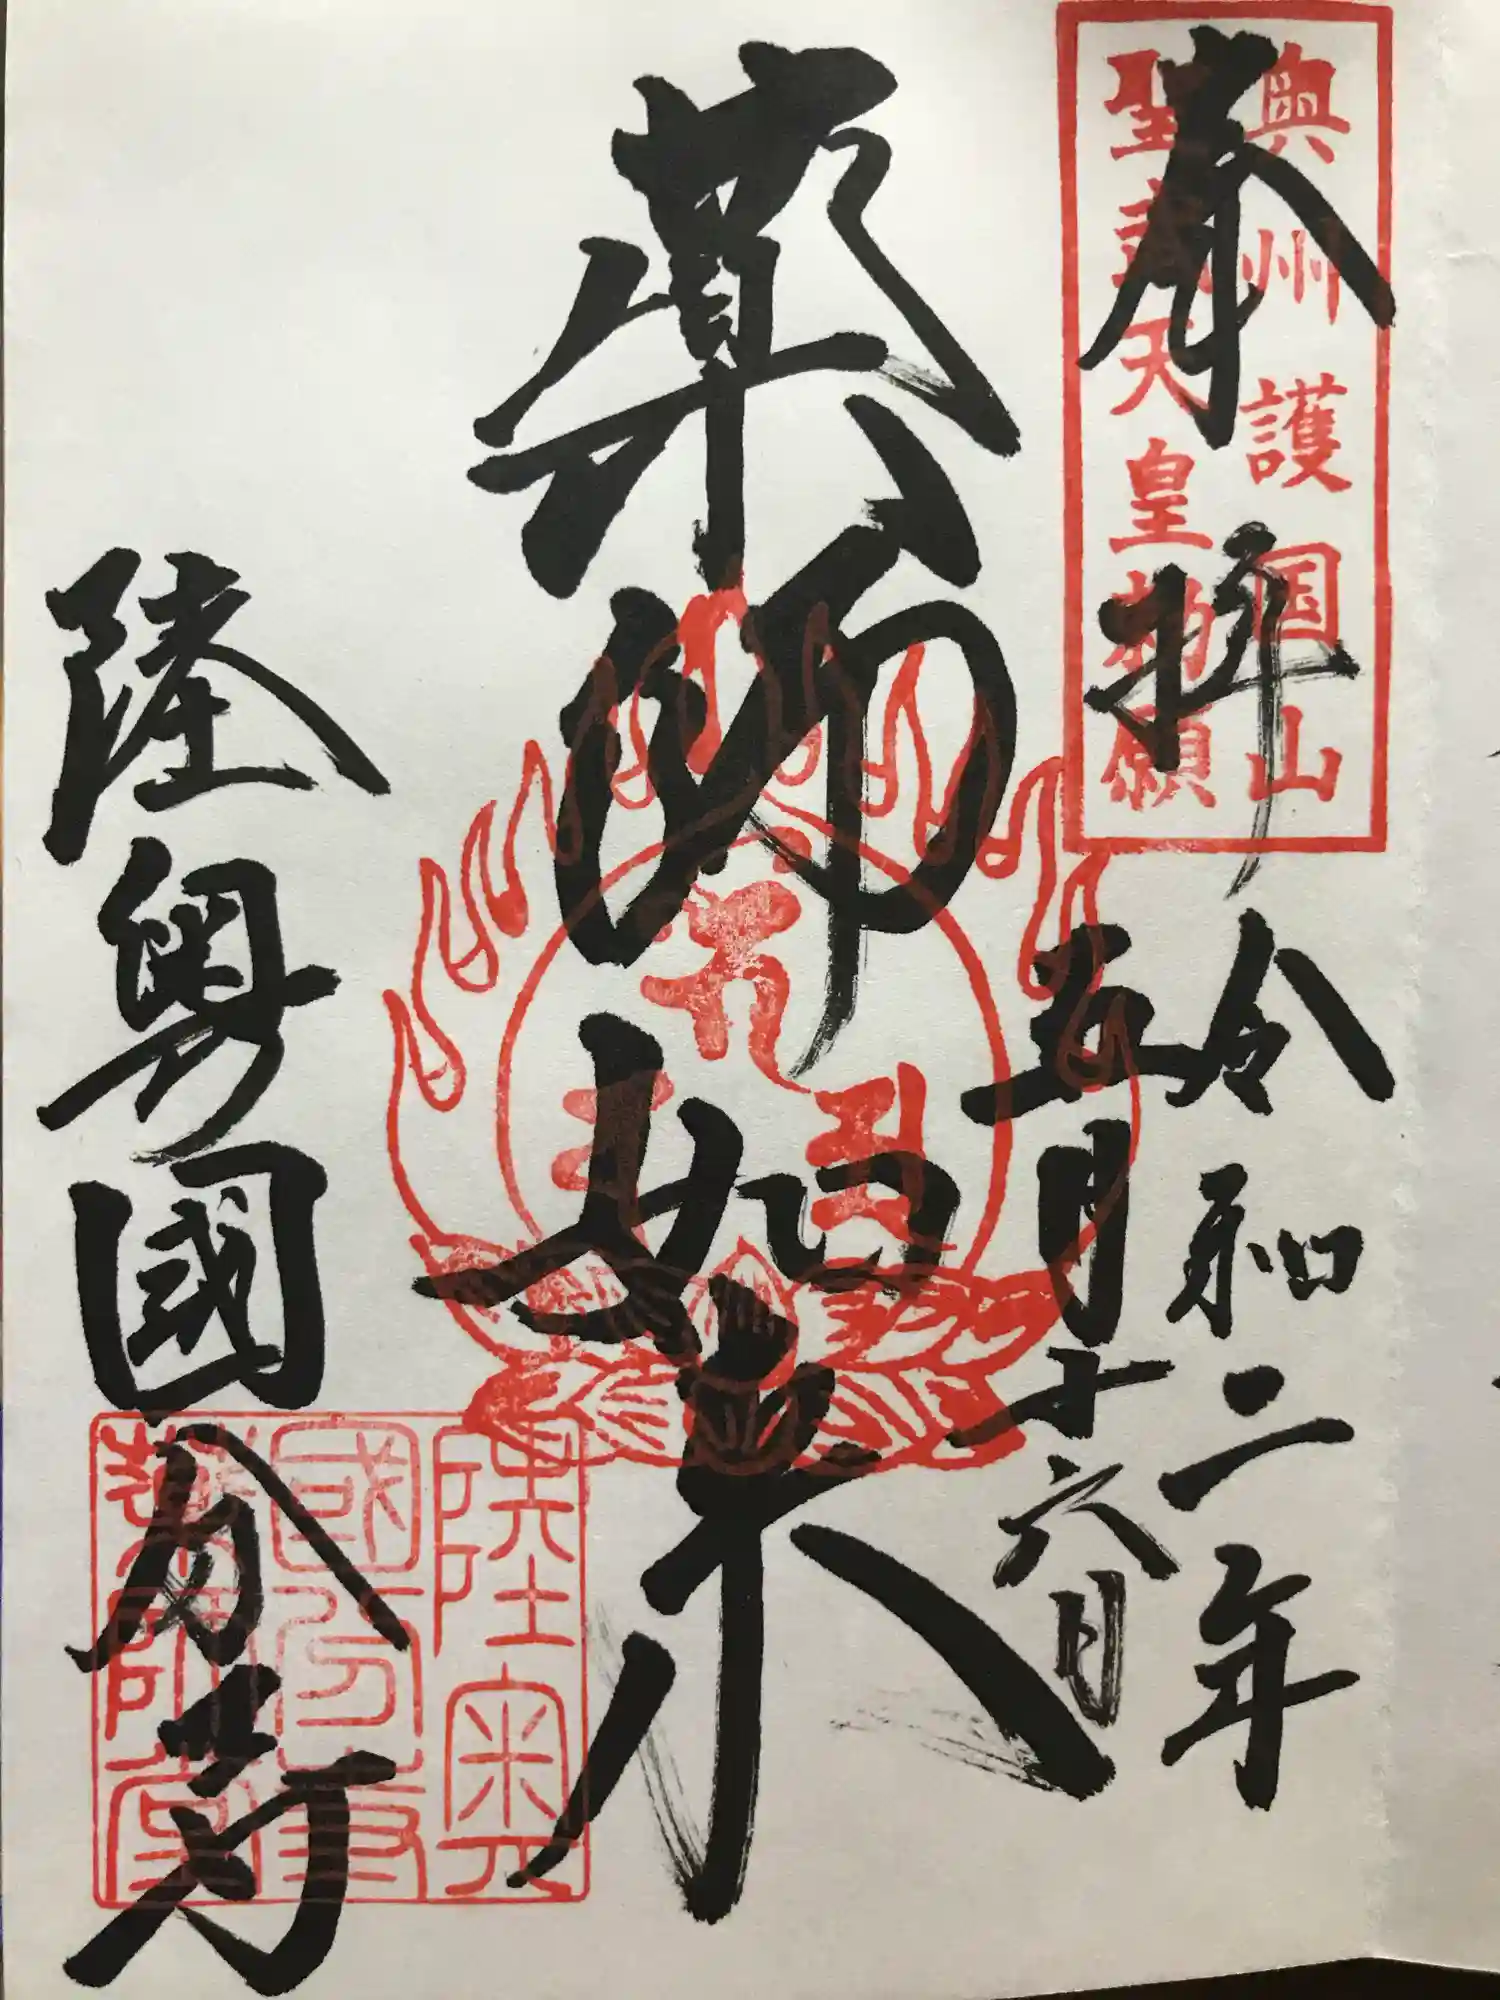 奥州護国山
聖武天皇勅願
奉拝
令和二年
五月十六日
薬師如来
陸奥國分寺
陸奥
國分寺
薬師堂